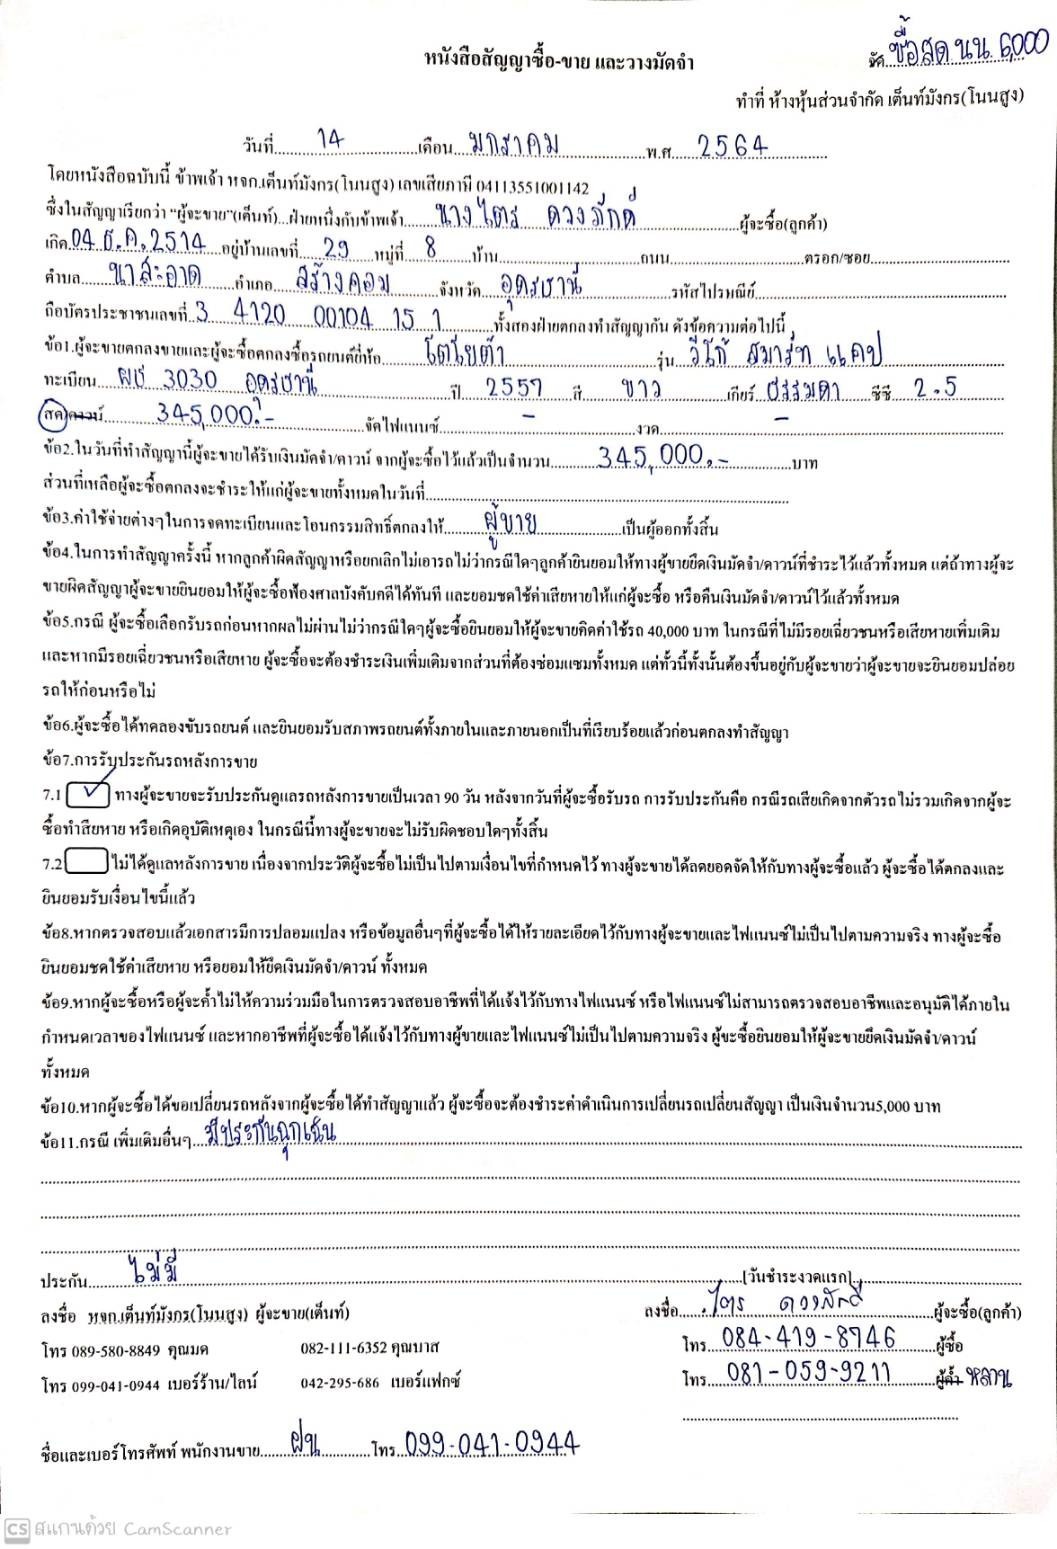 หนังสือสัญญาซื้อ-ขาย และวางมัดจำ
จัด ซื้อสด นน. 6,000
ทำที่ ห้างหุ้นส่วนจำกัด เต็นท์มังกร(โนนสูง)
วันที่ 14 เดือน มกราคม พ.ศ 2564
โดยหนังสือฉบับนี้ ข้าพเจ้า หจก.เต็นท์มังกร(โนนสูง) เลขเสียภาษี 04113551001142
ซึ่งในสัญญาเรียกว่า “ผู้จะขาย”(เต็นท์)...ฝ่ายหนึ่งกับข้าพเจ้า นางไตร ดวงภักดี ผู้จะซื้อ(ลูกค้า)
เกิด 04 ธ.ค. 2514 อยู่บ้านเลขที่ 29 หมู่ที่ 8 บ้าน ถนน ตรอก/ซอย
ตำบล นาสะอาด อำเภอ สร้างคอม จังหวัด อุดรธานี รหัสไปรษณีย์
ถือบัตรประชาชนเลขที่ 3 4120 00104 15 1 ทั้งสองฝ่ายตกลงทำสัญญากัน ดังข้อความต่อไปนี้
ข้อ1.ผู้จะขายตกลงขายและผู้จะซื้อตกลงซื้อรถยนต์ยี่ห้อ โตโยต้า รุ่น วีโก้ สมาร์ท แคป
ทะเบียน ผช 3030 อุดรธานี ปี 2557 สี ขาว เกียร์ ธรรมดา ซีซี 2.5
สด/ดาวน์ 345,000.- จัดไฟแนนซ์ - งวด -
ข้อ2.ในวันที่ทำสัญญานี้ผู้จะขายได้รับเงินมัดจำ/ดาวน์ จากผู้จะซื้อไว้แล้วเป็นจำนวน 345,000.- บาท
ส่วนที่เหลือผู้จะซื้อตกลงจะชำระให้แก่ผู้จะขายทั้งหมดในวันที่
ข้อ3.ค่าใช้จ่ายต่างๆในการจดทะเบียนและโอนกรรมสิทธิ์ตกลงให้ ผู้ขาย เป็นผู้ออกทั้งสิ้น
ข้อ4.ในการทำสัญญาครั้งนี้ หากลูกค้าผิดสัญญาหรือยกเลิกไม่เอารถไม่ว่ากรณีใดๆลูกค้ายินยอมให้ทางผู้ขายยึดเงินมัดจำ/ดาวน์ที่ชำระไว้แล้วทั้งหมด แต่ถ้าทางผู้จะ
ขายผิดสัญญาผู้จะขายยินยอมให้ผู้จะซื้อฟ้องศาลบังคับคดีได้ทันที และยอมชดใช้ค่าเสียหายให้แก่ผู้จะซื้อ หรือคืนเงินมัดจำ/ดาวน์ไว้แล้วทั้งหมด
ข้อ5.กรณี ผู้จะซื้อเลือกรับรถก่อนหากผลไม่ผ่านไม่ว่ากรณีใดๆผู้จะซื้อยินยอมให้ผู้จะขายคิดค่าใช้รถ 40,000 บาท ในกรณีที่ไม่มีรอยเฉี่ยวชนหรือเสียหายเพิ่มเติม
และหากมีรอยเฉี่ยวชนหรือเสียหาย ผู้จะซื้อจะต้องชำระเงินเพิ่มเติมจากส่วนที่ต้องซ่อมแซมทั้งหมด แต่ทั้วนี้ทั้งนั้นต้องขึ้นอยู่กับผู้จะขายว่าผู้จะขายจะยินยอมปล่อย
รถให้ก่อนหรือไม่
ข้อ6.ผู้จะซื้อได้ทดลองขับรถยนต์ และยินยอมรับสภาพรถยนต์ทั้งภายในและภายนอกเป็นที่เรียบร้อยแล้วก่อนตกลงทำสัญญา
ข้อ7.การรับประกันรถหลังการขาย
7.1 ✓ ทางผู้จะขายจะรับประกันดูแลรถหลังการขายเป็นเวลา 90 วัน หลังจากวันที่ผู้จะซื้อรับรถ การรับประกันคือ กรณีรถเสียเกิดจากตัวรถไม่รวมเกิดจากผู้จะ
ซื้อทำสียหาย หรือเกิดอุบัติเหตุเอง ในกรณีนี้ทางผู้จะขายจะไม่รับผิดชอบใดๆทั้งสิ้น
7.2 ไม่ได้ดูแลหลังการขาย เนื่องจากประวัติผู้จะซื้อไม่เป็นไปตามเงื่อนไขที่กำหนดไว้ ทางผู้จะขายได้ลดยอดจัดให้กับทางผู้จะซื้อแล้ว ผู้จะซื้อได้ตกลงและ
ยินยอมรับเงื่อนไขนี้แล้ว
ข้อ8.หากตรวจสอบแล้วเอกสารมีการปลอมแปลง หรือข้อมูลอื่นๆที่ผู้จะซื้อได้ให้รายละเอียดไว้กับทางผู้จะขายและไฟแนนซ์ไม่เป็นไปตามความจริง ทางผู้จะซื้อ
ยินยอมชดใช้ค่าเสียหาย หรือยอมให้ยึดเงินมัดจำ/ดาวน์ ทั้งหมด
ข้อ9.หากผู้จะซื้อหรือผู้จะค้ำไม่ให้ความร่วมมือในการตรวจสอบอาชีพที่ได้แจ้งไว้กับทางไฟแนนซ์ หรือไฟแนนซ์ไม่สามารถตรวจสอบอาชีพและอนุมัติได้ภายใน
กำหนดเวลาของไฟแนนซ์ และหากอาชีพที่ผู้จะซื้อได้แจ้งไว้กับทางผู้ขายและไฟแนนซ์ไม่เป็นไปตามความจริง ผู้ขะซื้อยินยอมให้ผู้จะขายยึดเงินมัดจำ/ดาวน์
ทั้งหมด
ข้อ10.หากผู้จะซื้อได้ขอเปลี่ยนรถหลังจากผู้จะซื้อได้ทำสัญญาแล้ว ผู้จะซื้อจะต้องชำระค่าดำเนินการเปลี่ยนรถเปลี่ยนสัญญา เป็นเงินจำนวน5,000 บาท
ข้อ11.กรณี เพิ่มเติมอื่นๆ มีประกันฉุกเฉิน
ประกัน ไม่มี [วันชำระงวดแรก]
ลงชื่อ หจก.เต็นท์มังกร(โนนสูง) ผู้จะขาย(เต็นท์) ลงชื่อ ไตร ดวงภักดี ผู้จะซื้อ(ลูกค้า)
โทร 089-580-8849 คุณมด 082-111-6352 คุณบาส โทร 084-419-8746 ผู้ซื้อ
โทร 099-041-0944 เบอร์ร้าน/ไลน์ 042-295-686 เบอร์แฟกซ์ โทร 081-059-9211 ผู้ค้ำ หลาน
ชื่อและเบอร์โทรศัพท์ พนักงานขาย ฝน โทร 099-041-0944
CS สแกนด้วย CamScanner